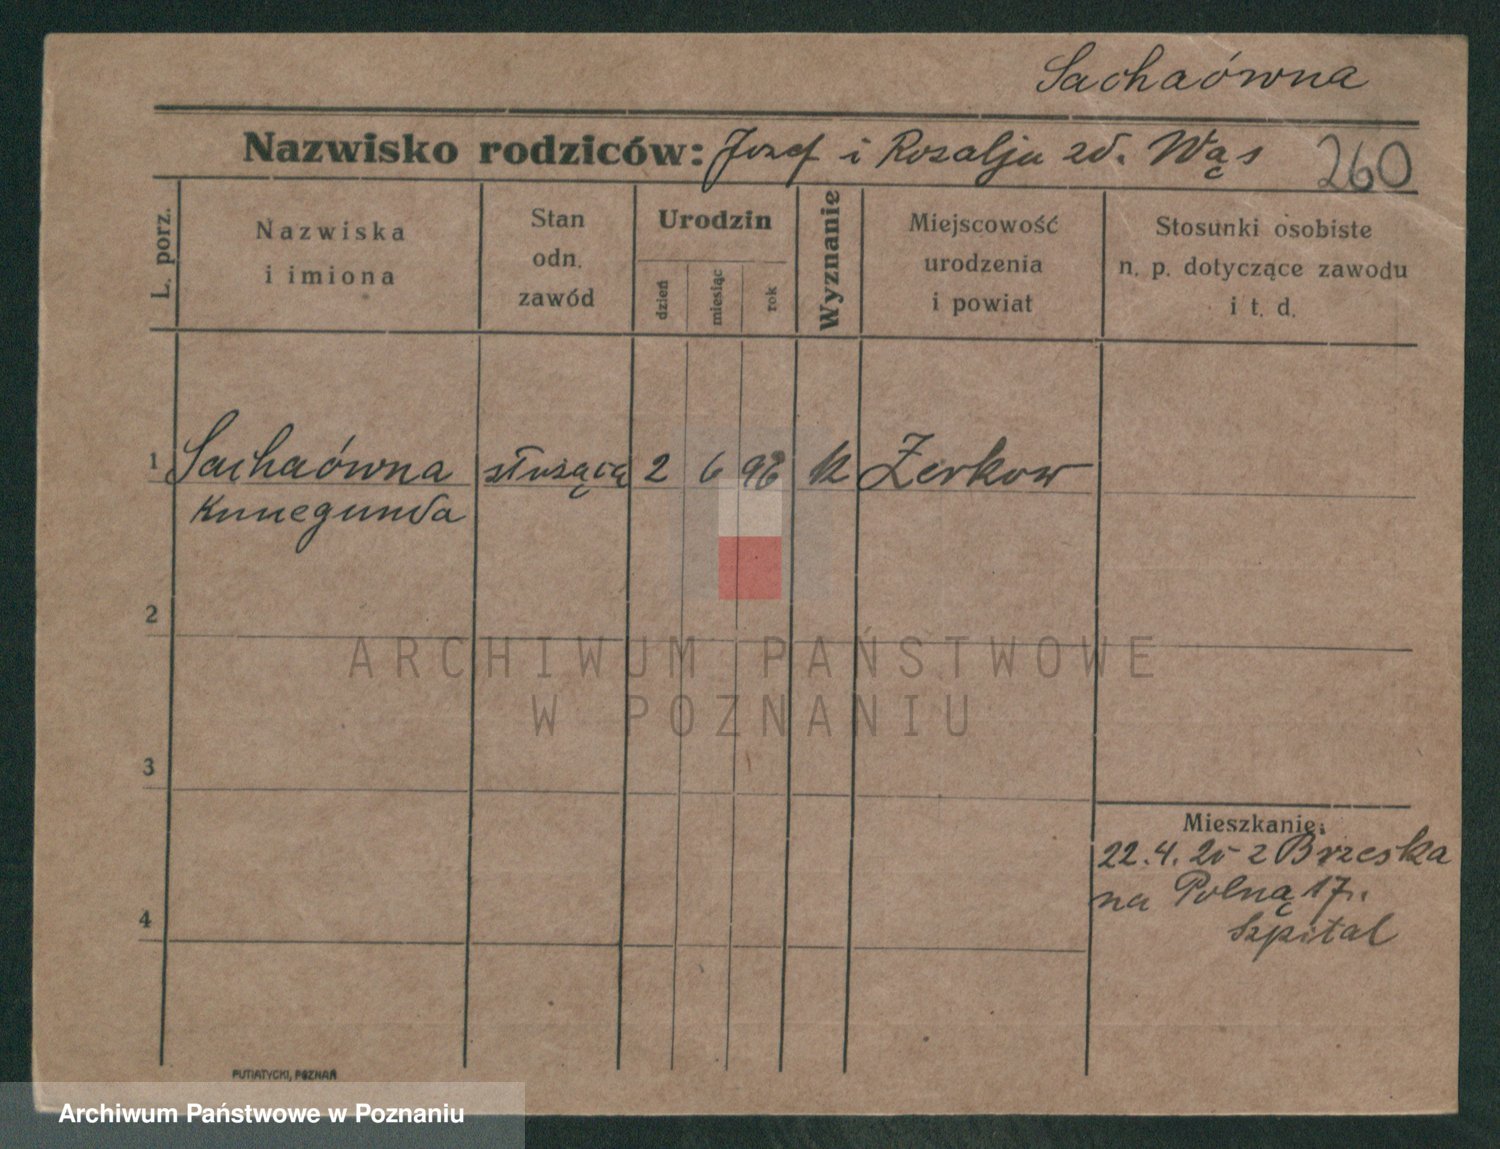 Sachaówna
Nazwisko rodziców: Jozef i Rozalja zd. Wąs 260
L. porz.
Nazwiska
i imiona
Stan
odn.
zawód
Urodzin
dzień
miesiąc
rok
Wyznanie
Miejscowość
urodzenia
i powiat
Stosunki osobiste
n. p. dotyczące zawodu
i t. d.
1 Sachaówna służąca 2 6 96 k Żerkow
Kunegunda
2
ARCHIWUM PAŃSTWOWE
W POZNANIU
3
Mieszkanie:
22.4.25 z Brzeska
na Polną 17.
Szpital
4
PUTIATYCKI, POZNAŃ
Archiwum Państwowe w Poznaniu